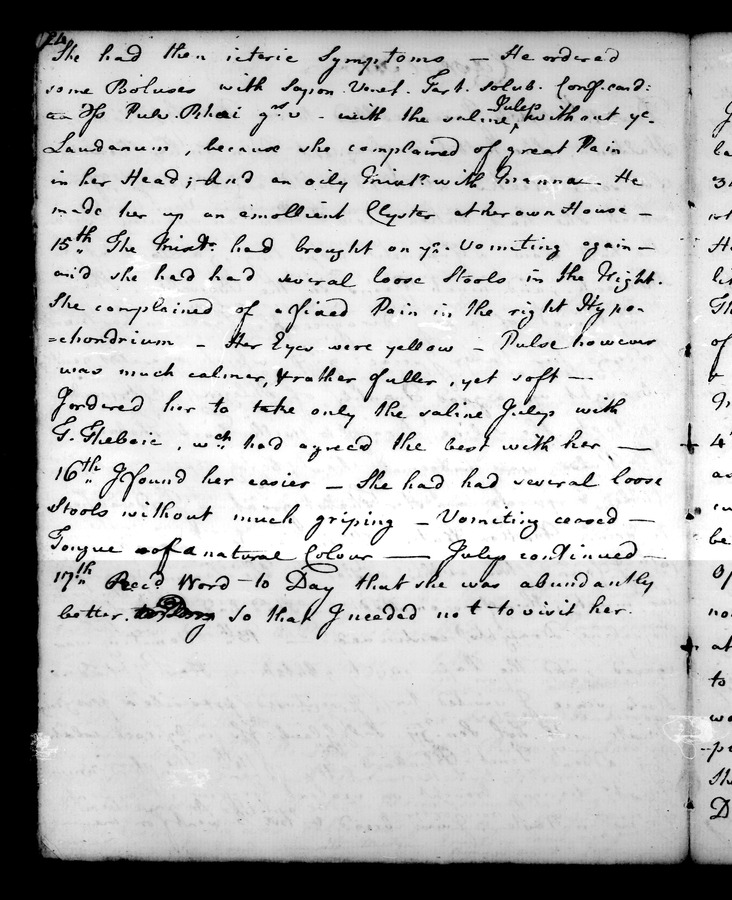 24
She had then icteric Symptoms — He ordered
some Boluses with Sapon. Venet. Tart. solub. Conf. card:
aa ʒſs Pulv. Rhei grs v - with the saline Julep, without ye
Laudanum, because she complained of great Pain
in her Head; And an oily Mixtr with Manna - He
made her up an emollient Clyster at her own House -
15th The Mixtr. had brought on ye vomiting again -
and she had had several loose Stools in the Night.
She complained of a fixed Pain in the right Hypo-
=chondrium - Her Eyes were yellow - Pulse however
was much calmer, & rather fuller, yet soft —
I ordered her to take only the saline Julep with
T. Thebaic, wch had agreed the best with her —
16th I found her easier - She had had several loose
Stools without much griping - Vomiting ceased —
Tongue of a natural Colour — Julep continued —
17th Recd Word to Day that she was abundantly
better. So that I needed not to visit her.